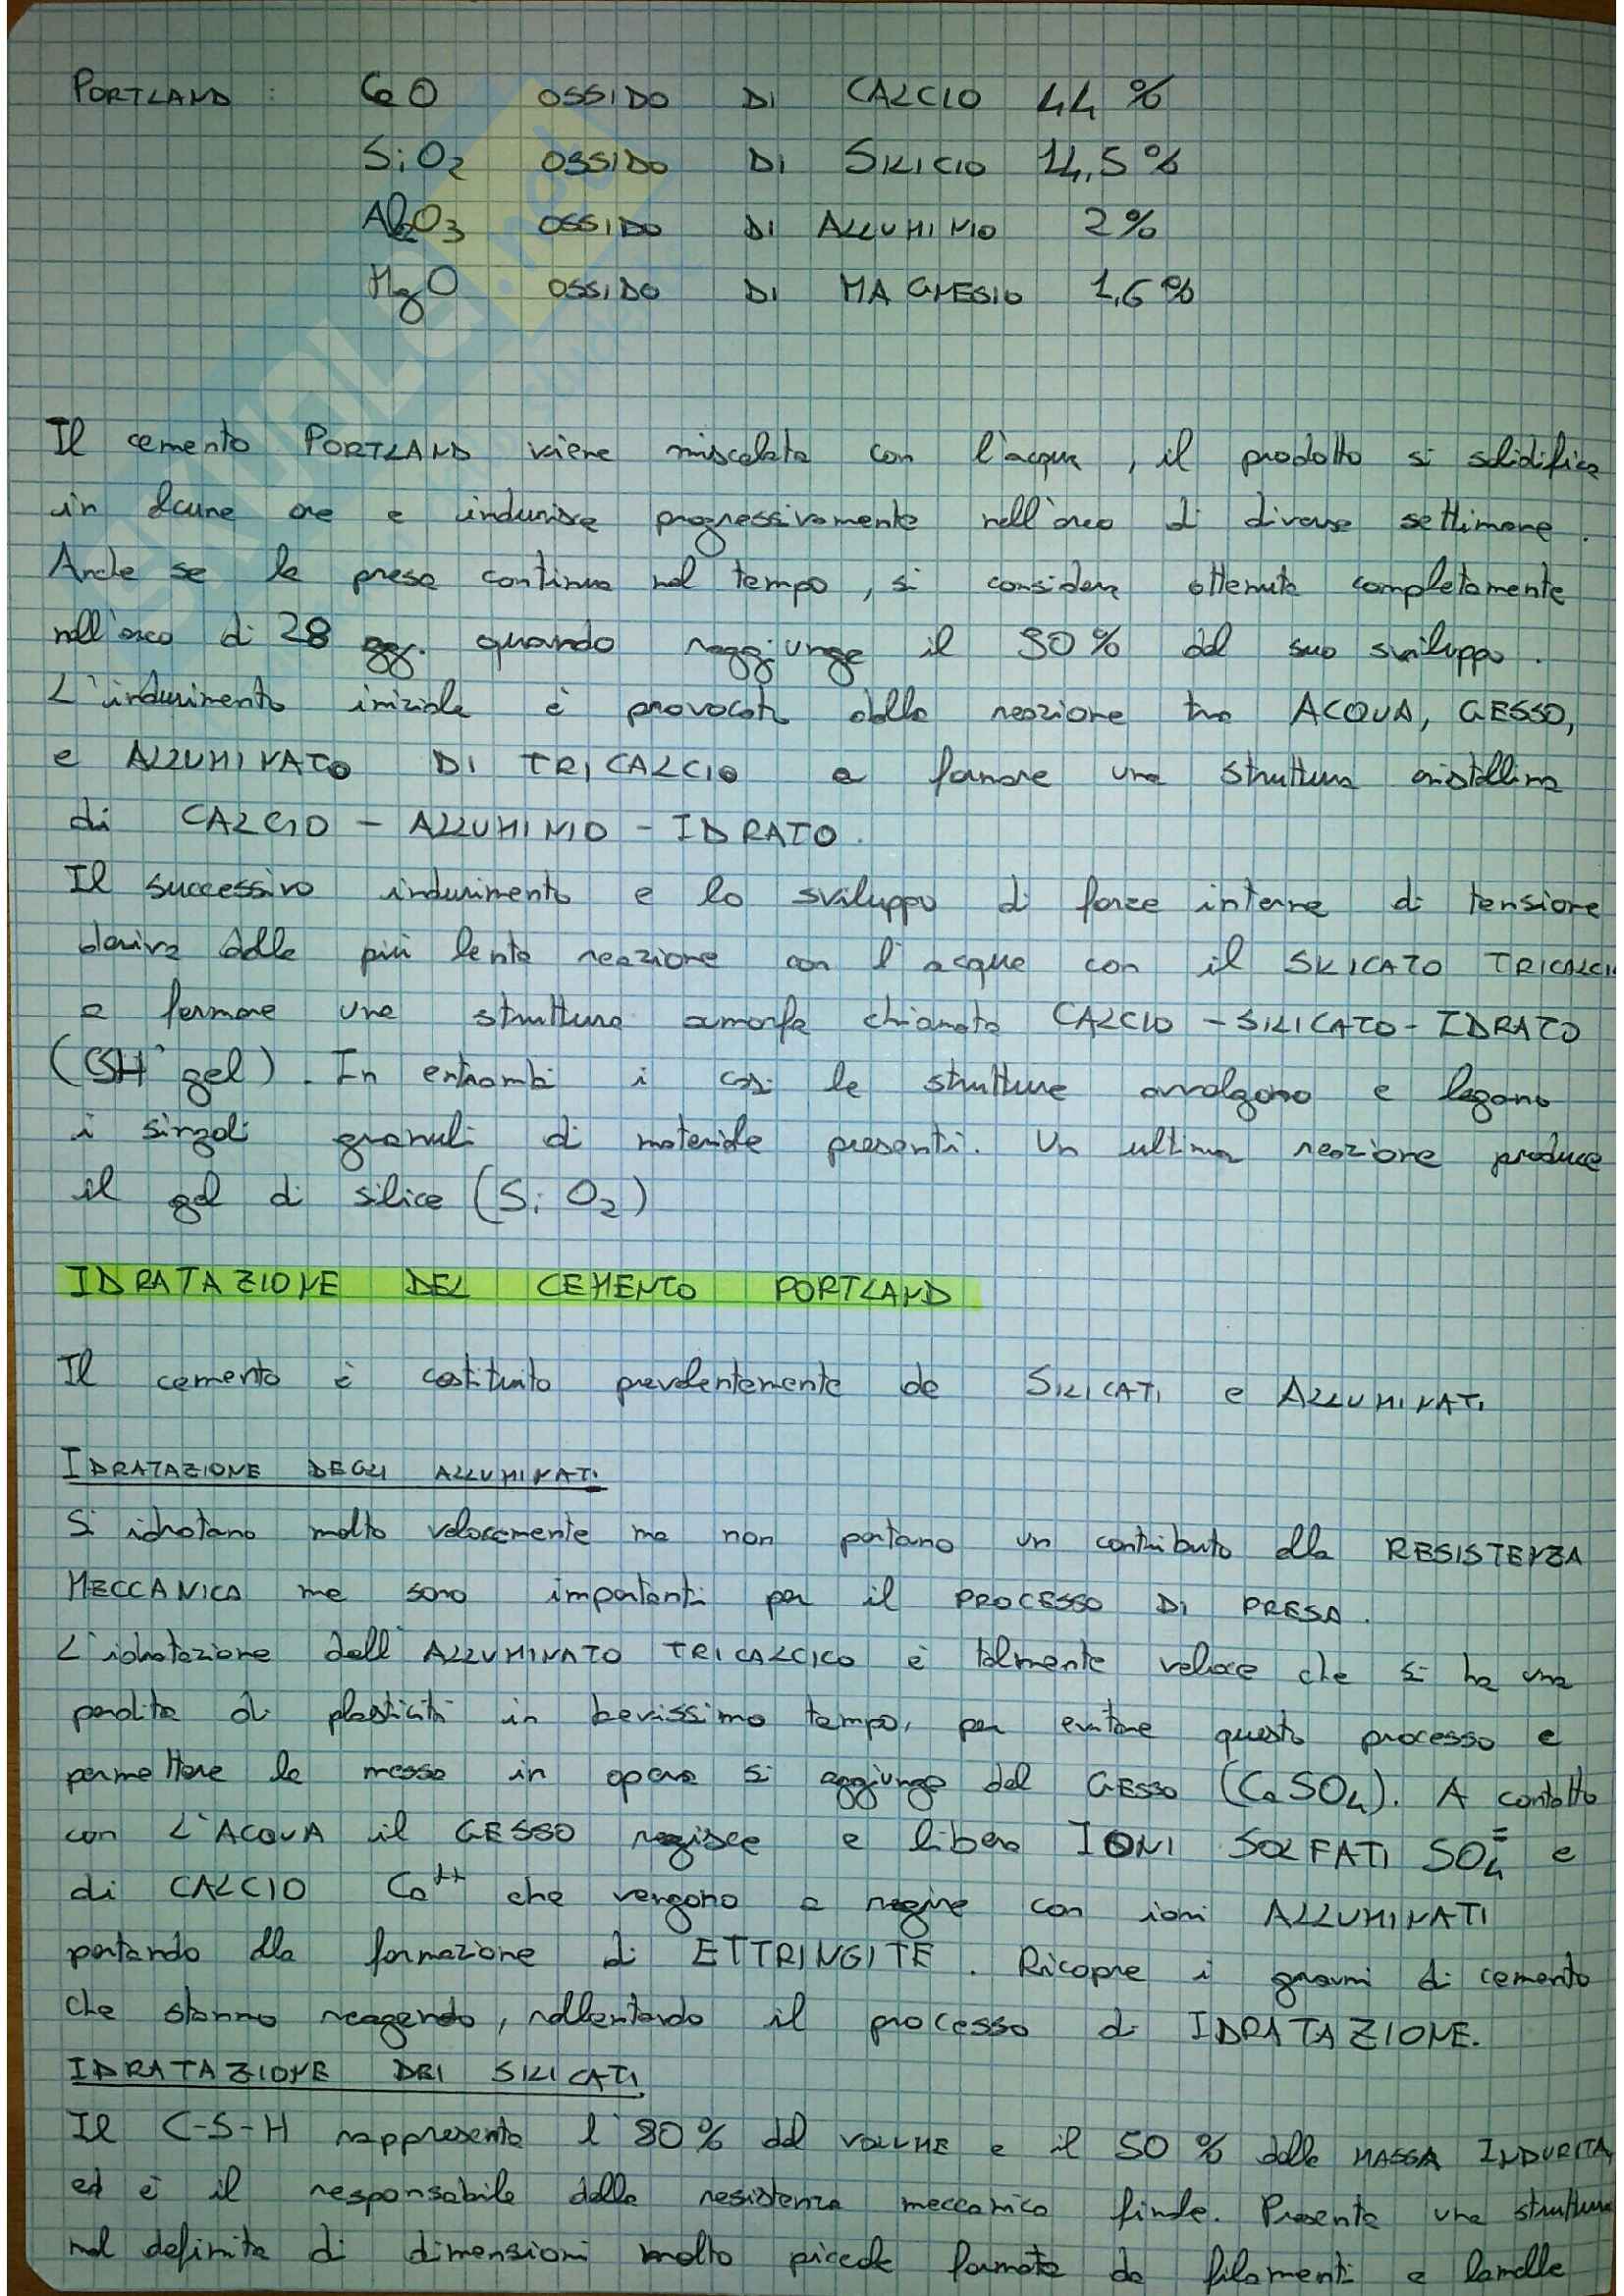 PORTLAND : CaO OSSIDO DI CALCIO 44 %
SiO2 OSSIDO DI SILICIO 14,5 %
Al2O3 OSSIDO DI ALLUMINIO 2%
MgO OSSIDO DI MAGNESIO 1,6 %
Il cemento PORTLAND viene miscelata con l'acqua, il prodotto si solidifica
in alcune ore e indurisce progressivamente nell'arco di diverse settimane.
Anche se la presa continua nel tempo, si considera ottenuta completamente
nell'arco di 28 gg. quando raggiunge il 90% del suo sviluppo.
L'indurimento iniziale è provocato dalla reazione tra ACQUA, GESSO,
e ALLUMINATO DI TRICALCIO a formare una struttura cristallina
di CALCIO - ALLUMINIO - IDRATO.
Il successivo indurimento e lo sviluppo di forze interne di tensione
deriva dalla più lenta reazione con l'acqua con il SILICATO TRICALCI
a formare una struttura amorfa chiamata CALCIO - SILICATO - IDRATO
(CSH gel). In entrambi i casi le strutture avvolgono e legano
i singoli granuli di materiale presenti. Un ultima reazione produce
il gel di silice (SiO2)
IDRATAZIONE DEL CEMENTO PORTLAND
Il cemento è costituito prevalentemente da SILICATI e ALLUMINATI
IDRATAZIONE DEGLI ALLUMINATI
Si idratano molto velocemente ma non portano un contributo alla RESISTENZA
MECCANICA ma sono importanti per il PROCESSO DI PRESA.
L'idratazione dell'ALLUMINATO TRICALCICO è talmente veloce che si ha una
perdita di plasticità in brevissimo tempo, per evitare questo processo e
permettere la messa in opera si aggiunge del GESSO (CaSO4). A contatto
con L'ACQUA il GESSO reagisce e libera IONI SOLFATI SO4= e
di CALCIO Ca++ che vengono a reagire con ioni ALLUMINATI
portando alla formazione di ETTRINGITE. Ricopre i granuli di cemento
che stanno reagendo, rallentando il processo di IDRATAZIONE.
IDRATAZIONE DEI SILICATI
Il C-S-H rappresenta l'80% del VOLUME e il 50 % della MASSA INDURITA,
ed è il responsabile della resistenza meccanica finale. Presenta una struttura
mal definita di dimensioni molto piccole formata da filamenti e lamelle